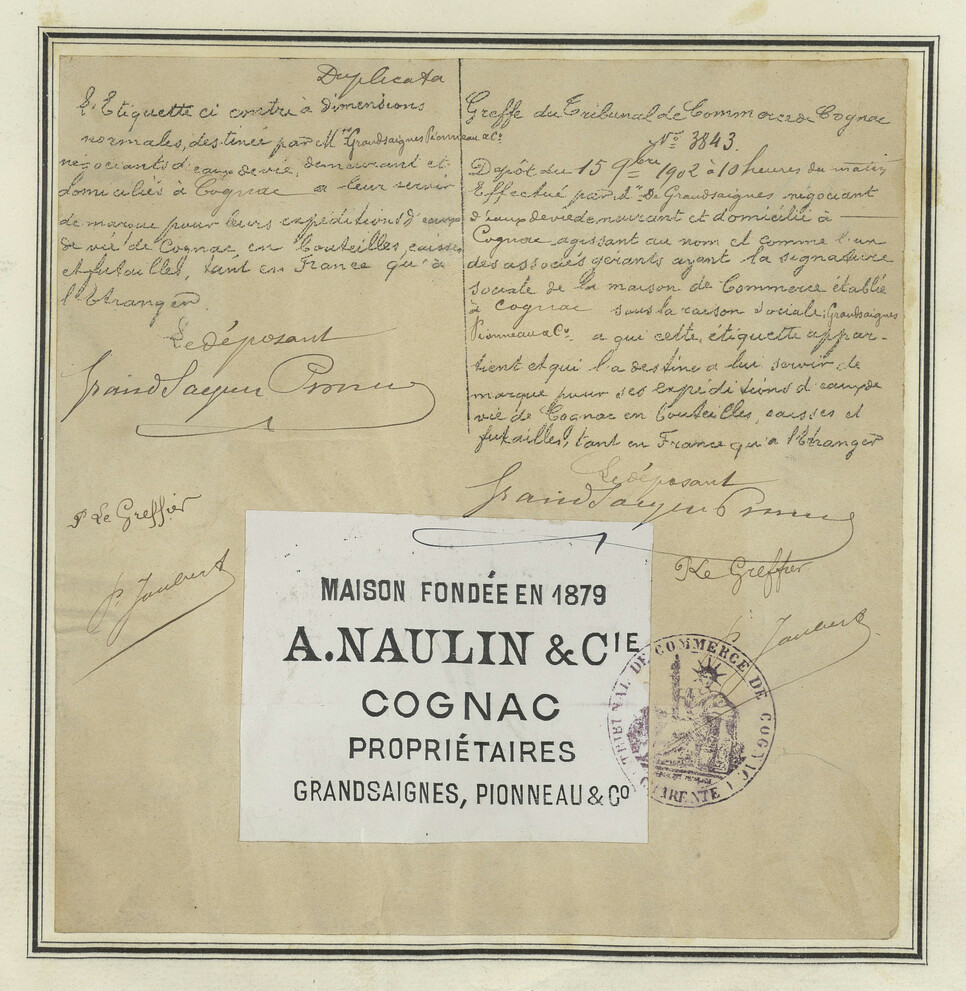 Duplicata
L'Etiquette ci contre à dimensions
normales, destinée par MM. Grandsaignes Pionneau & Co
négociants d'eaux de vie, demeurant et
domiciliés à Cognac a leur servir
de marque pour leurs expéditions d'eaux
de vie de Cognac en bouteilles, caisses
et futailles, tant en France qu'à
l'Etranger
Le déposant
P Le Greffier
P. Joubert
Greffe du Tribunal de Commerce de Cognac
No 3843.
Dépôt du 15 9bre 1902 à 10 heures du matin
Effectué par Mr De Grandsaignes négociant
d'eaux de vie demeurant et domicilié à
Cognac agissant au nom et comme l'un
des associés gérants ayant la signature
sociale de la maison de Commerce établie
à Cognac sous la raison sociale, Grandsaignes
Pionneau & Co. a qui cette étiquette appar-
tient et qui l'a destine a lui servir de
marque pour ses expéditions d'eaux de
vie de Cognac en bouteilles, caisses et
futailles, tant en France qu'a l'Etranger
Le déposant
P Le Greffier
P. Joubert
MAISON FONDÉE EN 1879
A. NAULIN & CIE
COGNAC
PROPRIÉTAIRES
GRANDSAIGNES, PIONNEAU & Co
TRIBUNAL DE COMMERCE DE COGNAC
CHARENTE